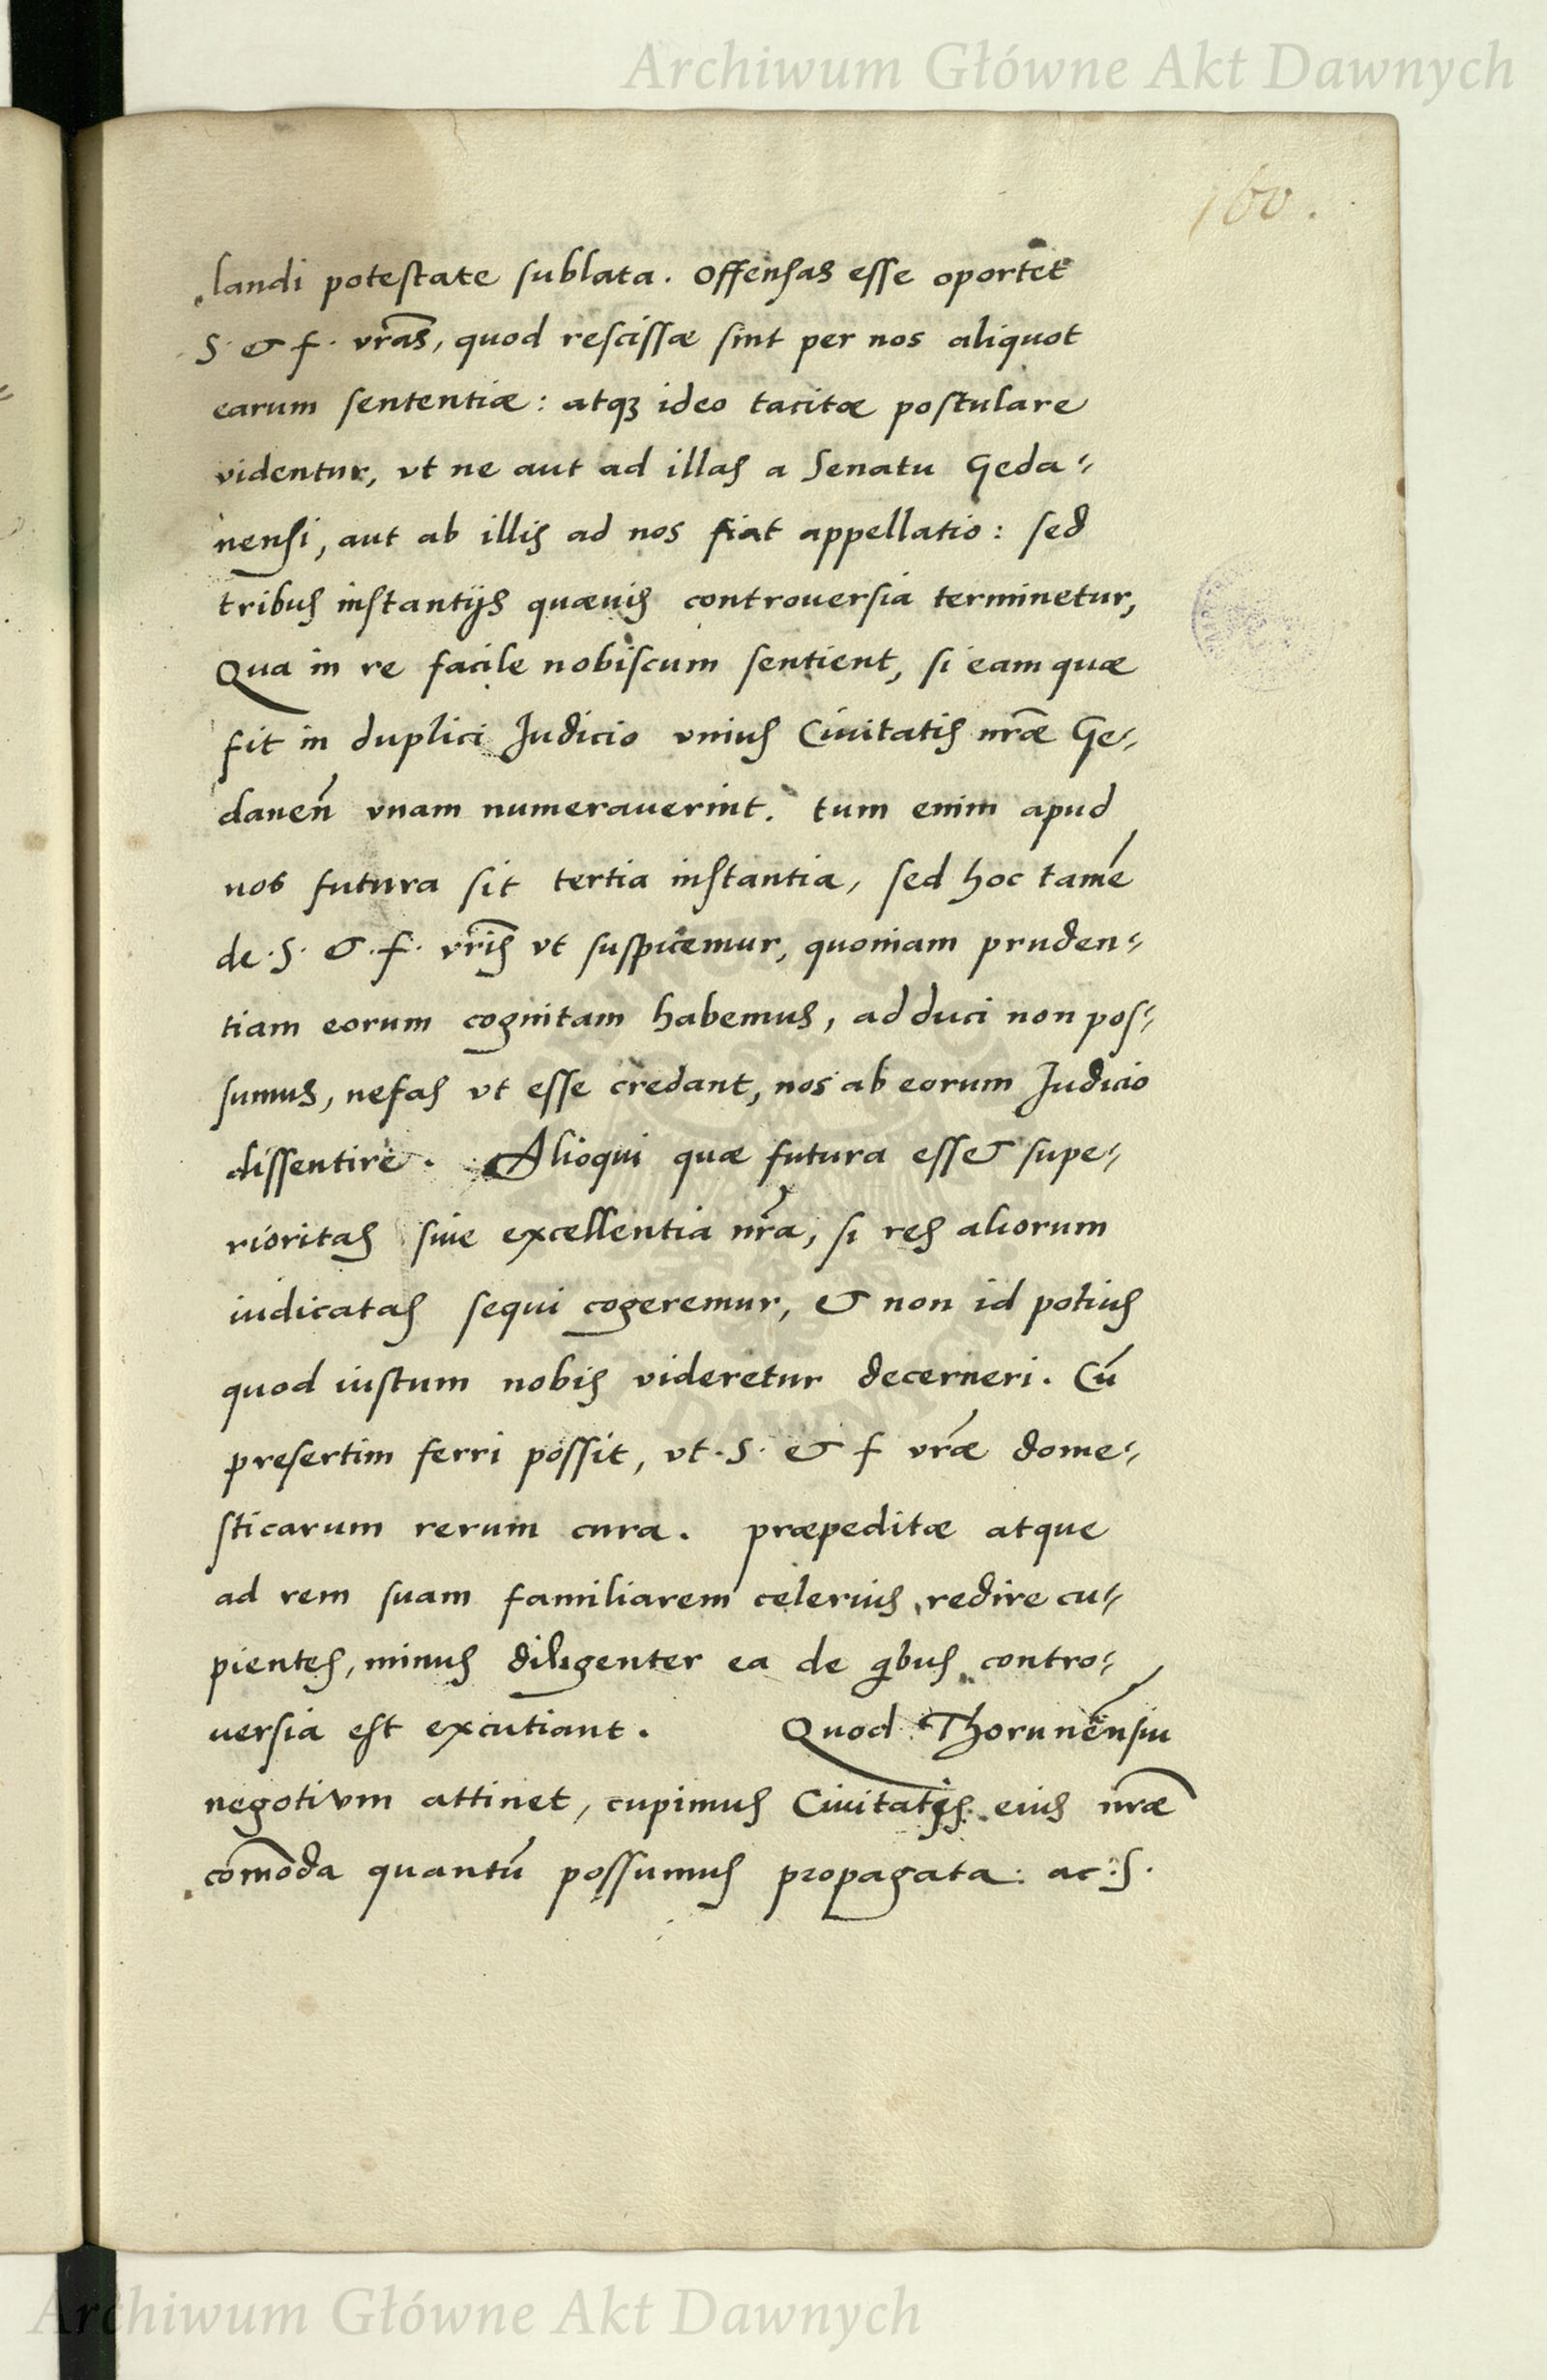 Archiwum Główne Akt Dawnych
160.
landi potestate sublata. Offensas esse oportet
S. & f. vr̃as, quod rescissæ sint per nos aliquot
earum sententiæ: atqꝫ ideo tacitæ postulare
videntur, vt ne aut ad illas a Senatu Geda-
nensi, aut ab illis ad nos fiat appellatio: sed
tribus instantijs quæuis controuersia terminetur,
Qua in re facile nobiscum sentient, si eam quæ
fit in duplici Judicio vnius Ciuitatis nr̃æ Ge-
daneñ vnam numerauerint. tum enim apud
nos futura sit tertia instantia, sed hoc tamẽ
de .S. & .f. vr̃is vt suspicemur, quoniam pruden-
tiam eorum cognitam habemus, adduci non pos-
sumus, nefas vt esse credant, nos ab eorum Judicio
dissentire. Alioqui quæ futura esset supe-
rioritas siue excellentia nr̃a, si res aliorum
iudicatas sequi cogeremur, & non id potius
quod iustum nobis videretur decerneri. Cũ
presertim ferri possit, vt .S. & f vr̃æ dome-
sticarum rerum cura. præpeditæ atque
ad rem suam familiarem celerius redire cu-
pientes, minus diligenter ea de qibus contro-
uersia est excutiant. Quod Thorunẽnsiu
negotivm attinet, cupimus Ciuitatis eius nr̃æ
com̃oda quantũ possumus propagata: ac .S.
Archiwum Główne Akt Dawnych